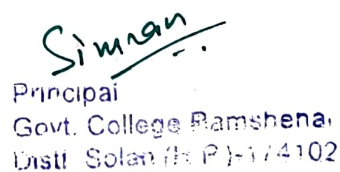 Simran
Principal
Govt. College Ramshehar
Distt Solan (H.P)-174102